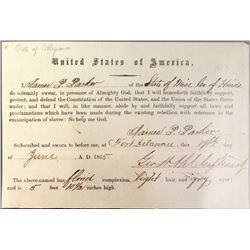 Oath of Allegiance
United States of America.
I, James P. Parker of the State of Miss. Co of Hinds
do solemnly swear, in presence of Almighty God, that I will henceforth faithfully support,
protect, and defend the Constitution of the United States, and the Union of the States there-
under; and that I will, in like manner, abide by and faithfully support all laws and
proclamations which have been made during the existing rebellion with reference to the
emancipation of slaves: So help me God.
James P. Parker
Subscribed and sworn to before me, at Fort Delaware, this 19th
day of June, A. D. 1865
Geo.
The above-named has blond complexion, light hair, and grey eyes;
and is 5 feet inches high.